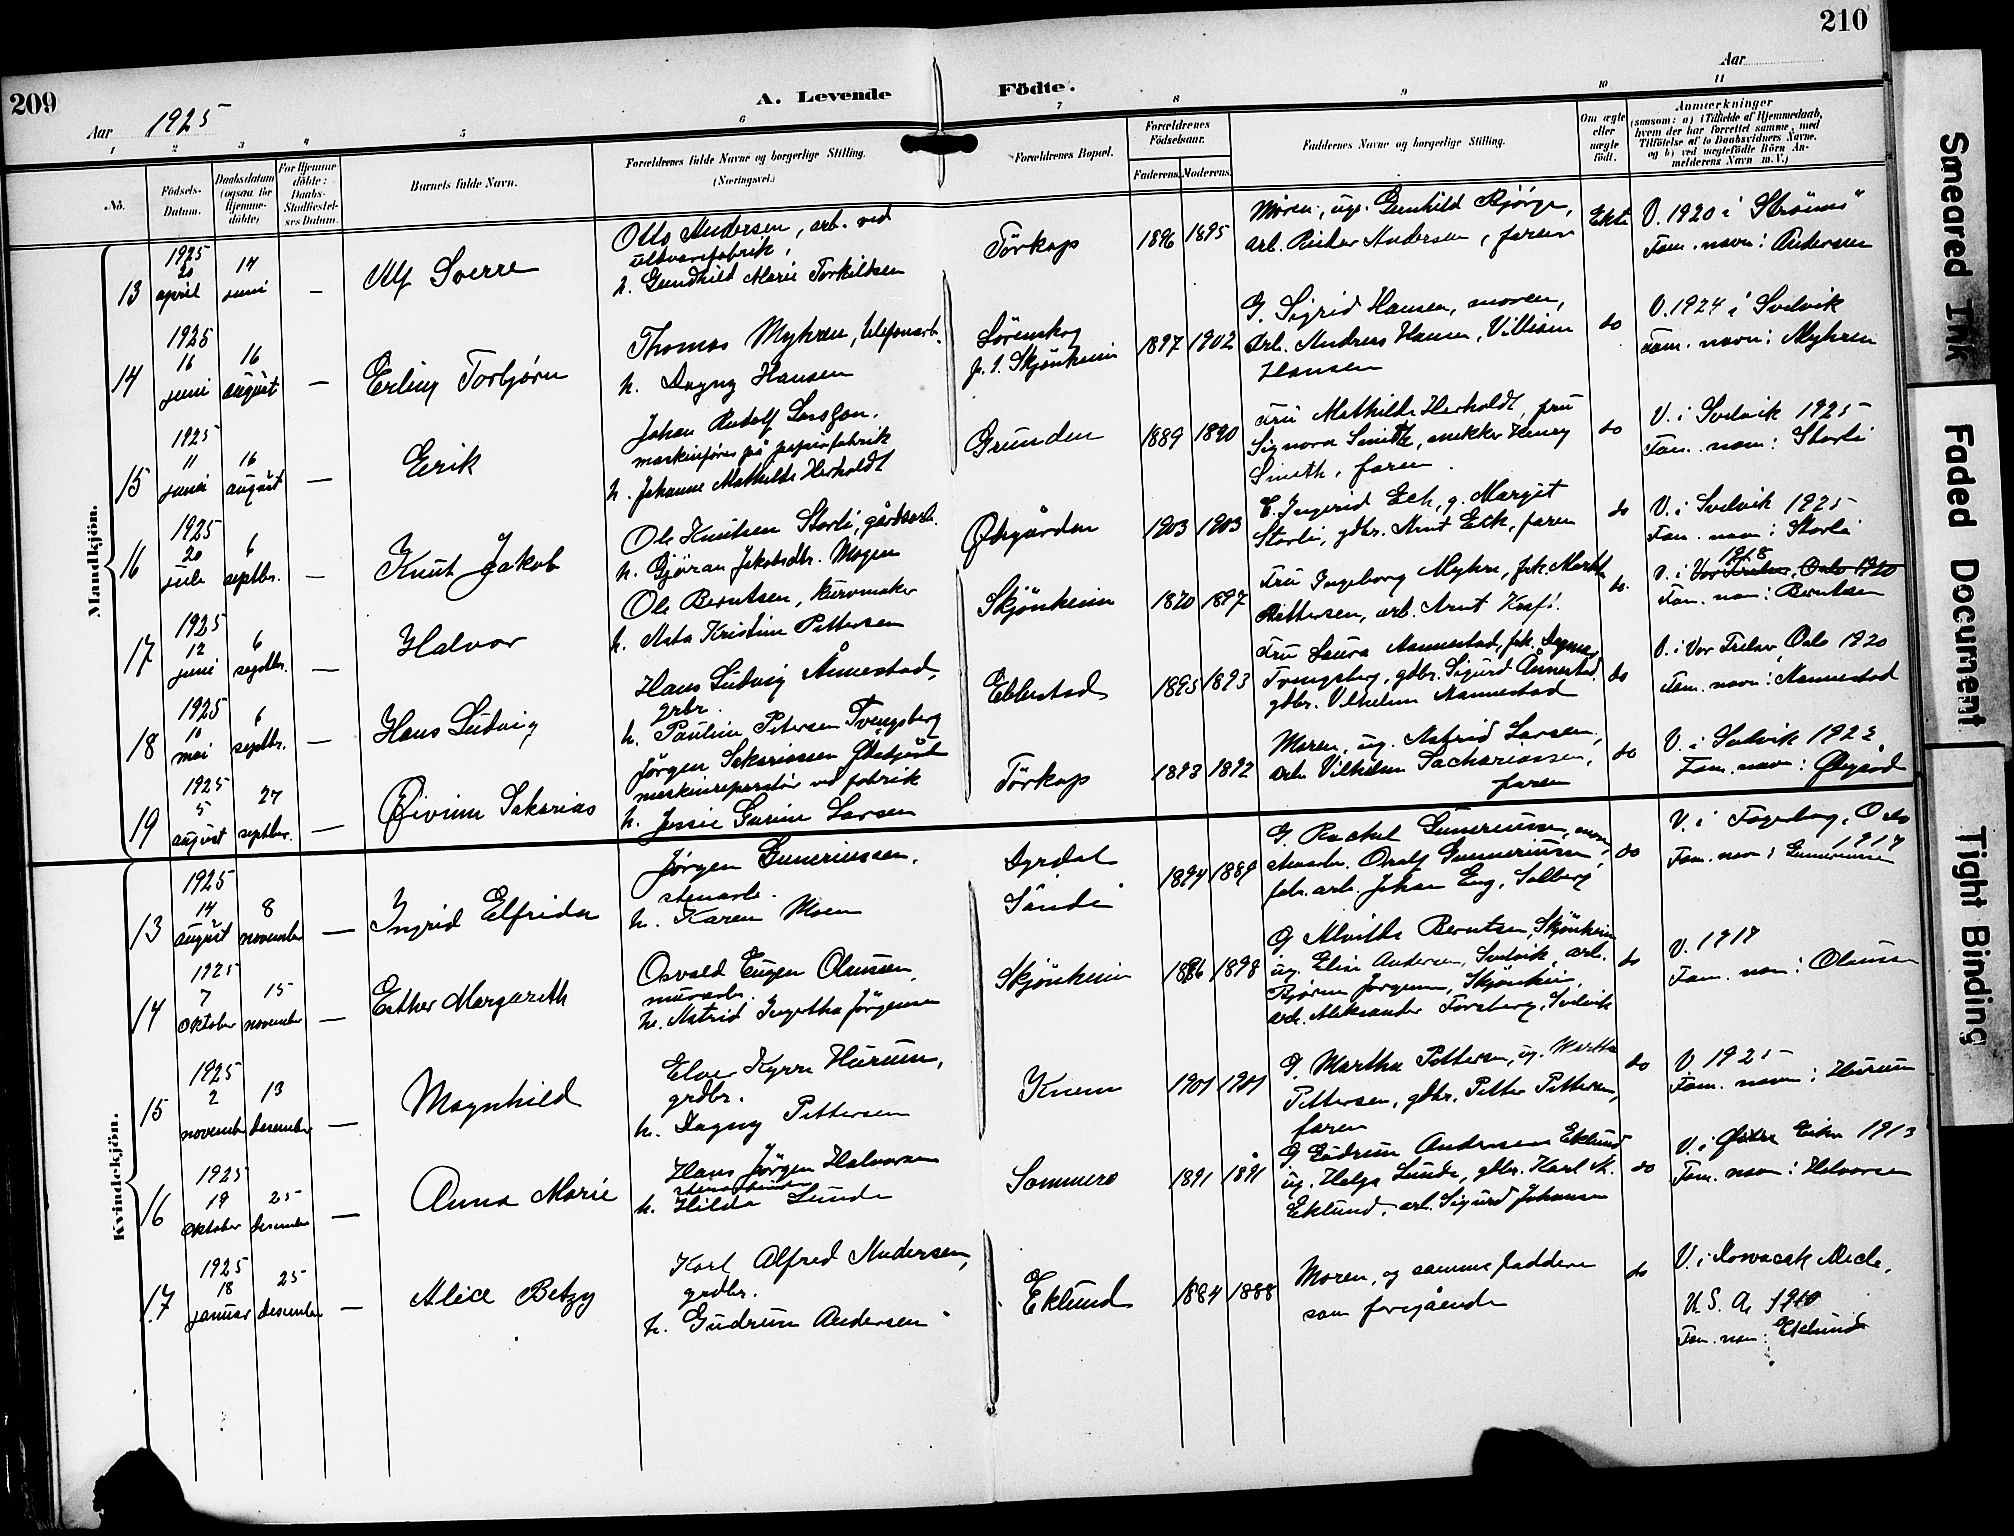 209
210
Aar 1925
A. Levende Fødte.
Aar
1
2
3
4
5
6
7
8
9
10
11
No.
Fødsels-
Datum.
Daabsdatum
(ogsaa for
Hjemme-
døbte)
For Hjemme-
døbte:
Daabs-
Stadfæstel-
ses Datum.
Barnets fulde Navn.
Forældrenes fulde Navne og borgerlige Stilling.
(Næringsvei.)
Forældrenes Bopæl.
Forældrenes
Fødselsaar.
Faderens.
Moderens.
Faddernes Navne og borgerlige Stilling.
Om ægte
eller
uægte
født.
Anmærkninger
(saasom: a) i Tilfælde af Hjemmedaab,
hvem der har forrettet samme, med
Tilføielse af to Daabsvidners Navne.
og b) ved uægtefødte Børn An-
melderens Navn m. V.)
Mandkjøn.
13
1925
20
april
14
juni
—
Alf Sverre
Otto Andersen, arb. ved
uldvarefabrik,
h. Gundhild Marie Torkildsen
Tørkop
1896 1895
Moren, ug. Gunhild Bjørge,
arb. Andersen, faren
Ekte
V. 1920 i Strømm
Fam. navn: Andersen
14
1925
16
juni
16
august
—
Erling Torbjørn
Thomas Myhren, telefonarb.
h. Dagny Hansen
Sørenskog
p. t. Skjønheim
1897 1902
G. Sigrid Hansen, moren,
Arb. Andreas Hansen, Villiam
Hansen
do
V. 1924 i Svelvik
Fam. navn: Myhren
15
1925
11
juni
16
august
—
Eerik
Johan Rudolf
maskinfører på papirfabrik
h. Johanne Mathilde Herholdt
Grunden
1889 1890
Fru Mathilde Herholdt, fru
Signora Smith, snekker Henry
Smith, faren.
do
V. i Svelvik 1925
Fam. navn: Storli
16
1925
20
juli
6
septbr.
—
Knut Jakob
Ole Knutsen Storli, gårdsarb.
h. Gjøran Jakobsdtr. Mogen
Ødegården
1903 1903
E. Ingerid Eck, g. Margit
Storli, gdbr. Arnt Eck, faren
do
V. i Svelvik 1925
Fam. navn: Storli
17
1925
12
juni
6
septbr.
—
Halvor
Ole Berntsen, kurvmaker
h. Asta Kristine Pettersen
Skjønheim
1870 1897
Fru Ingeborg Myhre, frk. Martha
Pettersen, arb. Arnt
do.
V. i 1918 Vor Frelser, Oslo 1920
Fam. navn: Berntsen
18
1925
10
mai
6
septbr.
—
Hans Ludvig
Hans Ludvig Ånnestad,
grbr.
h. Pauline Petersen Tvengsberg
Ebbestad
1895 1893
Fru Laura Aannestad, frk. Dagmar
Tvengsberg, gdbr. Sigurd Ånnestad,
gdbr. Vilhelm Aannestad
do
V. i Vor Frelser, Oslo 1920
Fam. navn: Aannestad
19
1925
5
august
27
septbr.
—
Øivinn Sakarias
Jørgen Sakariassen Ødegård
maskinreparatør ved fabrik
h. Jessie Gurine Larsen
Tørkop
1893 1892
Moren, ug. Astrid Larsen,
arb. Vilhelm Sachariassen,
faren
do
V. i Svelvik 1922
Fam. navn: Øegård
Kvindekjøn.
13
1925
14
august
8
november
—
Ingrid Elfrida
Jørgen Gunneriussen,
stenarb.
h. Karen Moen
Dyrdal
Sande
1894 1889
G. Rachel Gunneriussen, moren,
stenarbr. Oralf Gunneriussen,
fabr. arb. Johan Eng, Solberg
do
V. i Fagerborg, Oslo
1917
Fam. navn: Gunneriussen
14
1925
7
oktober
15
november
—
Esther Margareth
Osvald Eugen Olaussen,
murarb.
h. Astrid Ingertha Jørgensen
Skjønheim
1886 1898
G Alvilde Berntsen, Skjønheim
ug. Elise Andersen, Svelvik, arb.
Bjørn Jørgensen, Skjønheim,
arb. Aleksander Forsberg, Svelvik
do
V. 1917
Fam. navn: Olaussen
15
1925
2
november
13
desember
—
Magnhild
Elver Kyrre Hurum,
grdbr.
h. Dagny Pettersen
Knem
1901 1901
G. Martha Pettersen, ug. Martha
Pettersen, gdbr. Petter Pettersen,
faren
do
V. 1925
Fam. navn: Hurum
16
1925
19
oktober
25
desember
—
Anna Marie
Hans Jørgen Halvorsen
stenarbeider
h. Hilda Lunde
Sommero
1891 1891
G Gudrun Andersen Eklund
ug. Helga Lunde, gdbr. Karl A.
Eklund, arb. Sigurd Johansen
do
V. i Øvre Eiker 1913
Fam. navn: Halvorsen
17
1925
18
januar
25
desember
—
Alice Betzy
Karl Alfred Andersen,
grdbr.
h. Gudrun Andersen
Eklund
1884 1888
Moren, og samme faddere
som foregående
do
V. i
U. S. A. 1910
Fam. navn: Eklund
Smeared Ink
Faded Document
Tight Binding